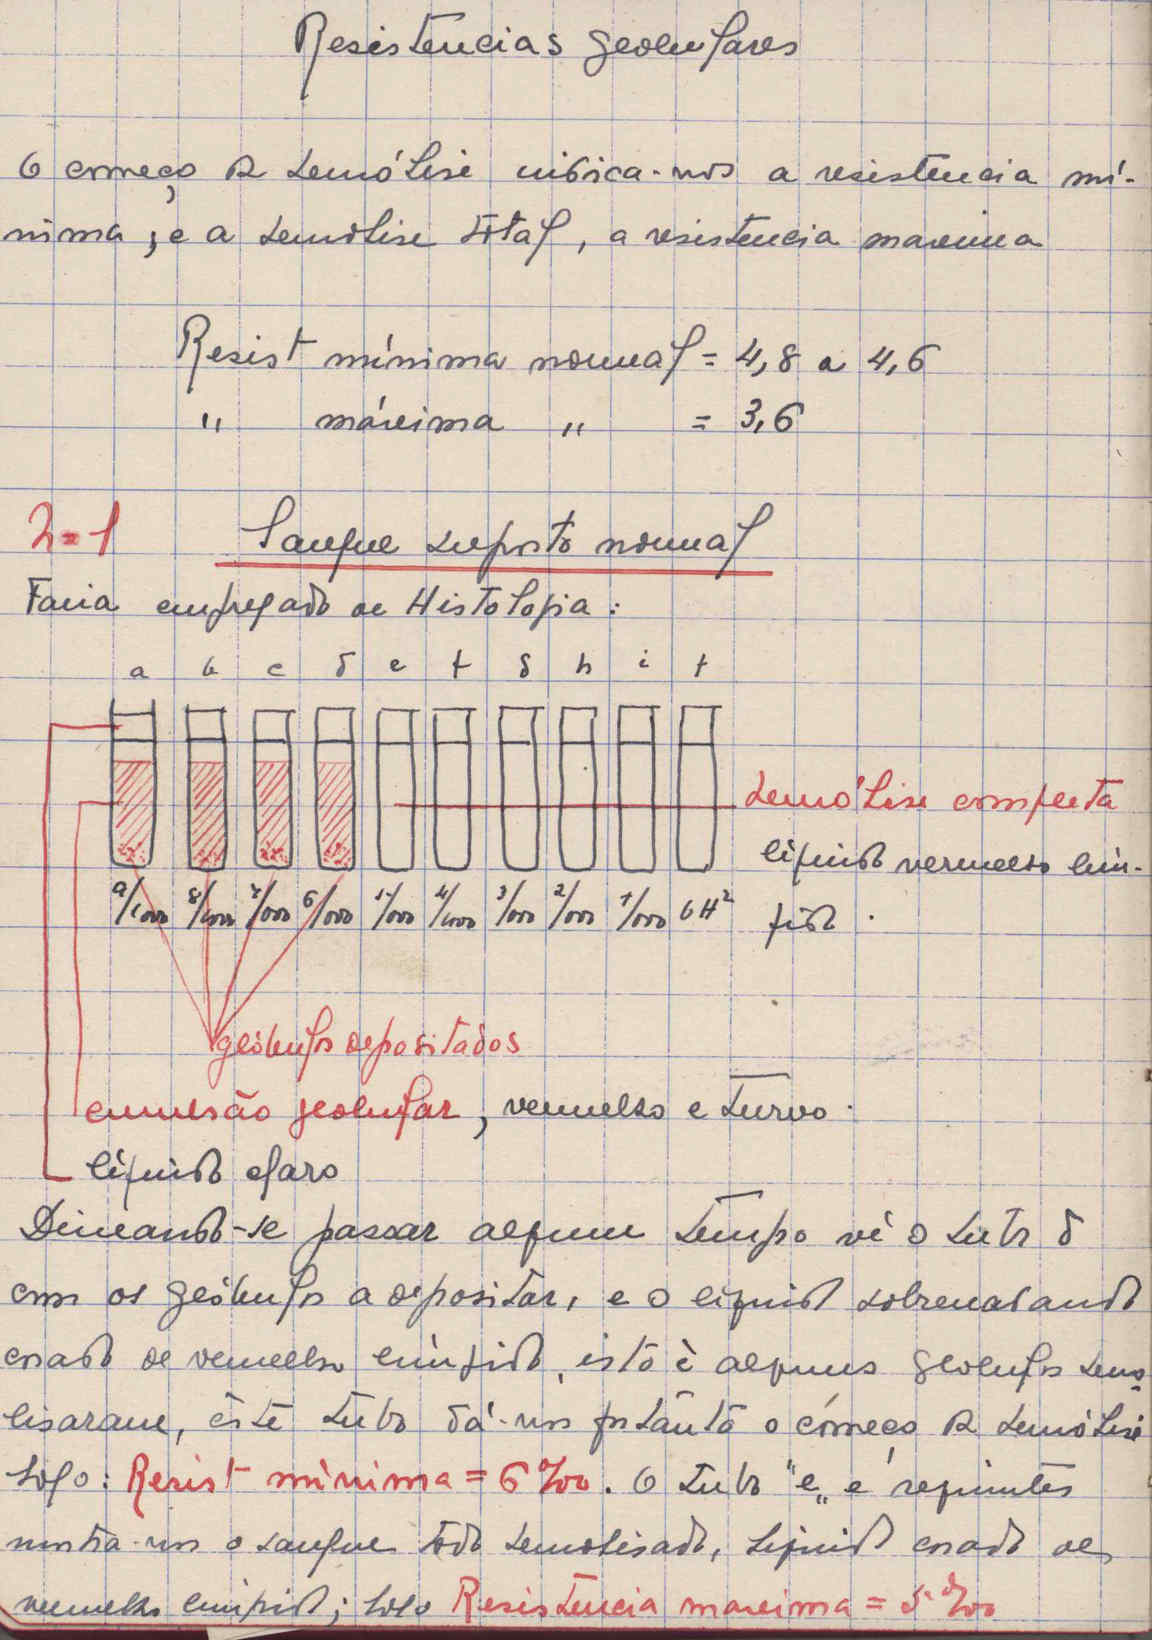 Resistencias globulares
O começo da hemólise indica-nos a resistencia mí-
nima, e a hemolise total, a resistencia maxima
Resist mínima normal = 4,8 a 4,6
" máxima " = 3,6
Sangue suposto normal
Faria empregado de Histologia:
a b c d e f g h i j
hemólise completa
liquido vermelho lím-
pido.
9/1000 8/1000 7/000 6/000 5/000 4/1000 3/000 2/000 1/000 OH²
glóbulos depositados
emulsão globular, vermelho e turvo.
líquido claro
Deixando-se passar algum tempo vê o tubo d
com os glóbulos a depositar, e o liquido sobrenadando
corado de vermelho límpido, isto è alguns globulos hemo-
lisaram, êste tubo dá-nos portanto o comêço da hemólise
logo: Resist mínima = 6‰. O tubo "e" e seguintes
mostra-nos o sangue todo hemolisado, liquido corado de
vermelho limpido; logo Resistencia maxima = 5‰